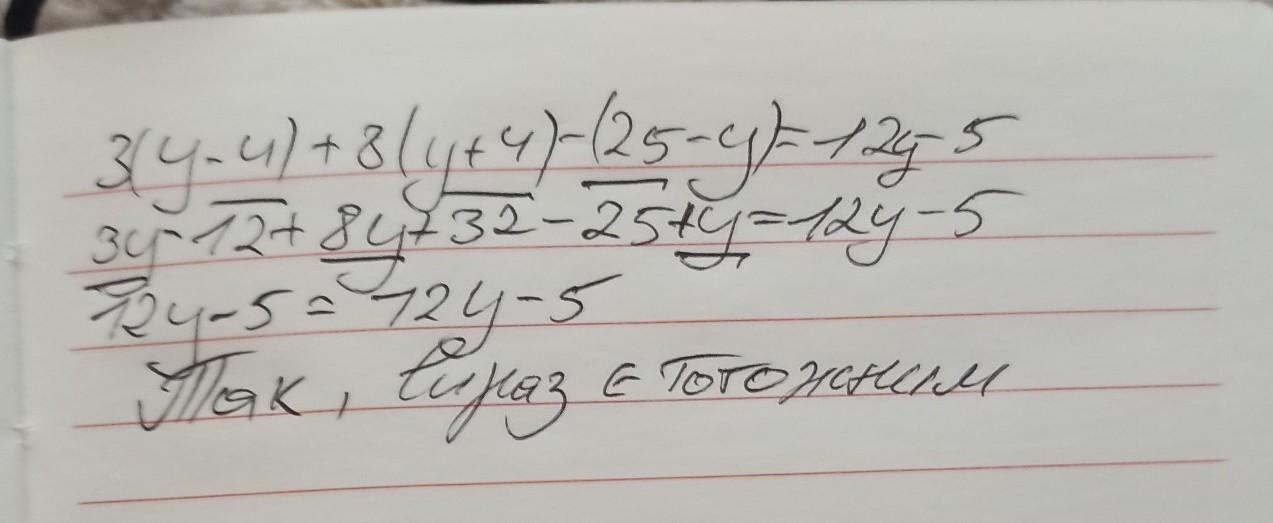 3(y-4)+8(y+4)-(25-y)=12y-5
3y-12+8y+32-25+y=12y-5
12y-5=12y-5
Так, вираз є тотожним